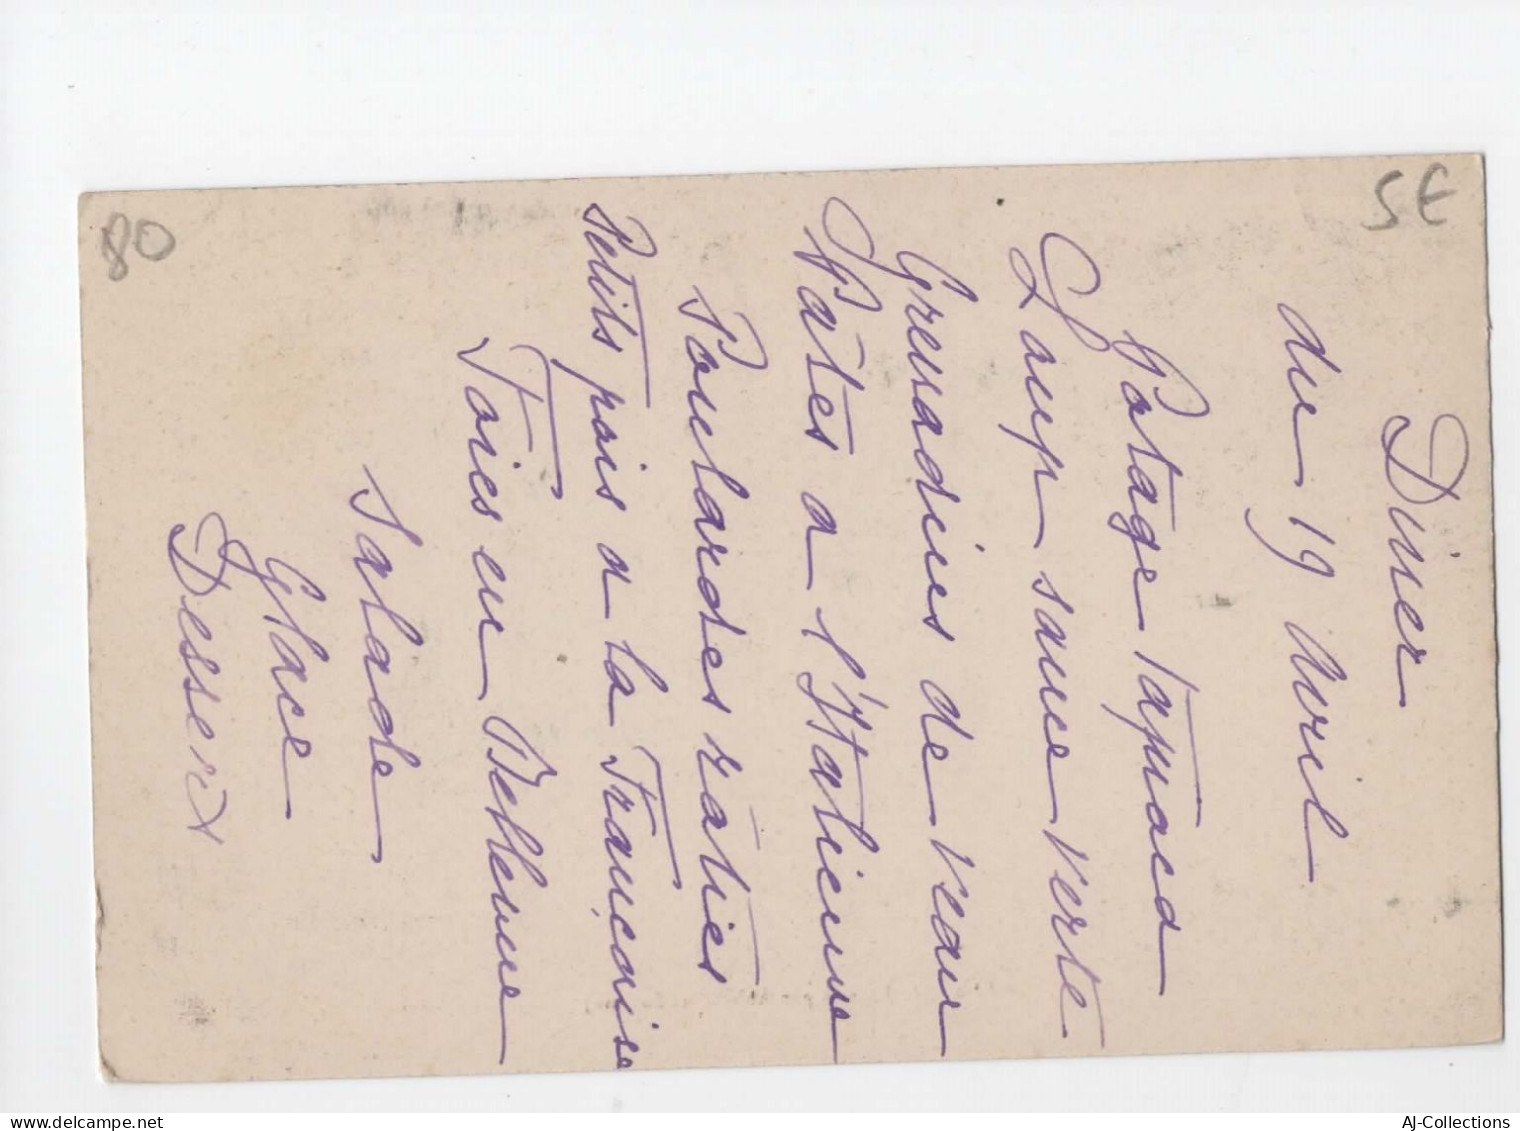 Dîner
du 19 Avril
Potage Tapioca
Loup sauce verte
Grenadins de veau
Pates a l'Italienne
Poulardes raties
Petits pois a la Française
Foies en Bellevue
Salade
Glace
Dessert
5€
80
AJ-Collections